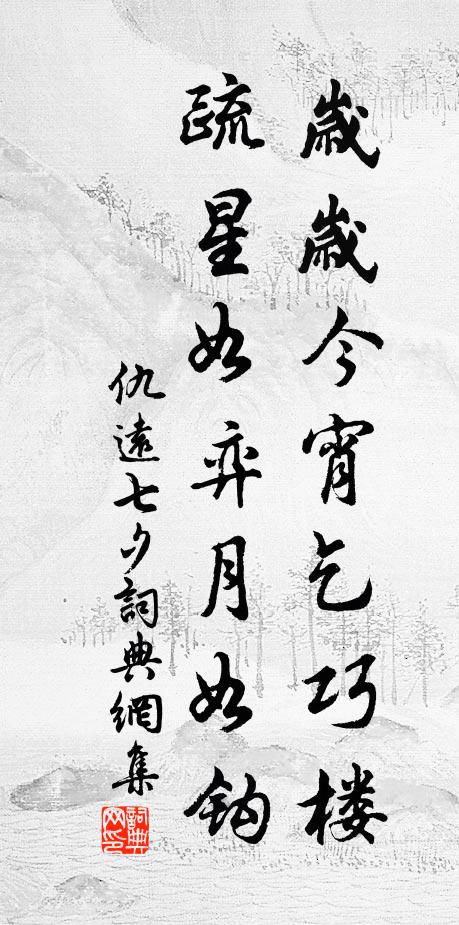 歲歲今宵乞巧樓
疏星如弈月如鈎
仇遠七夕詞典網集
詞典網印